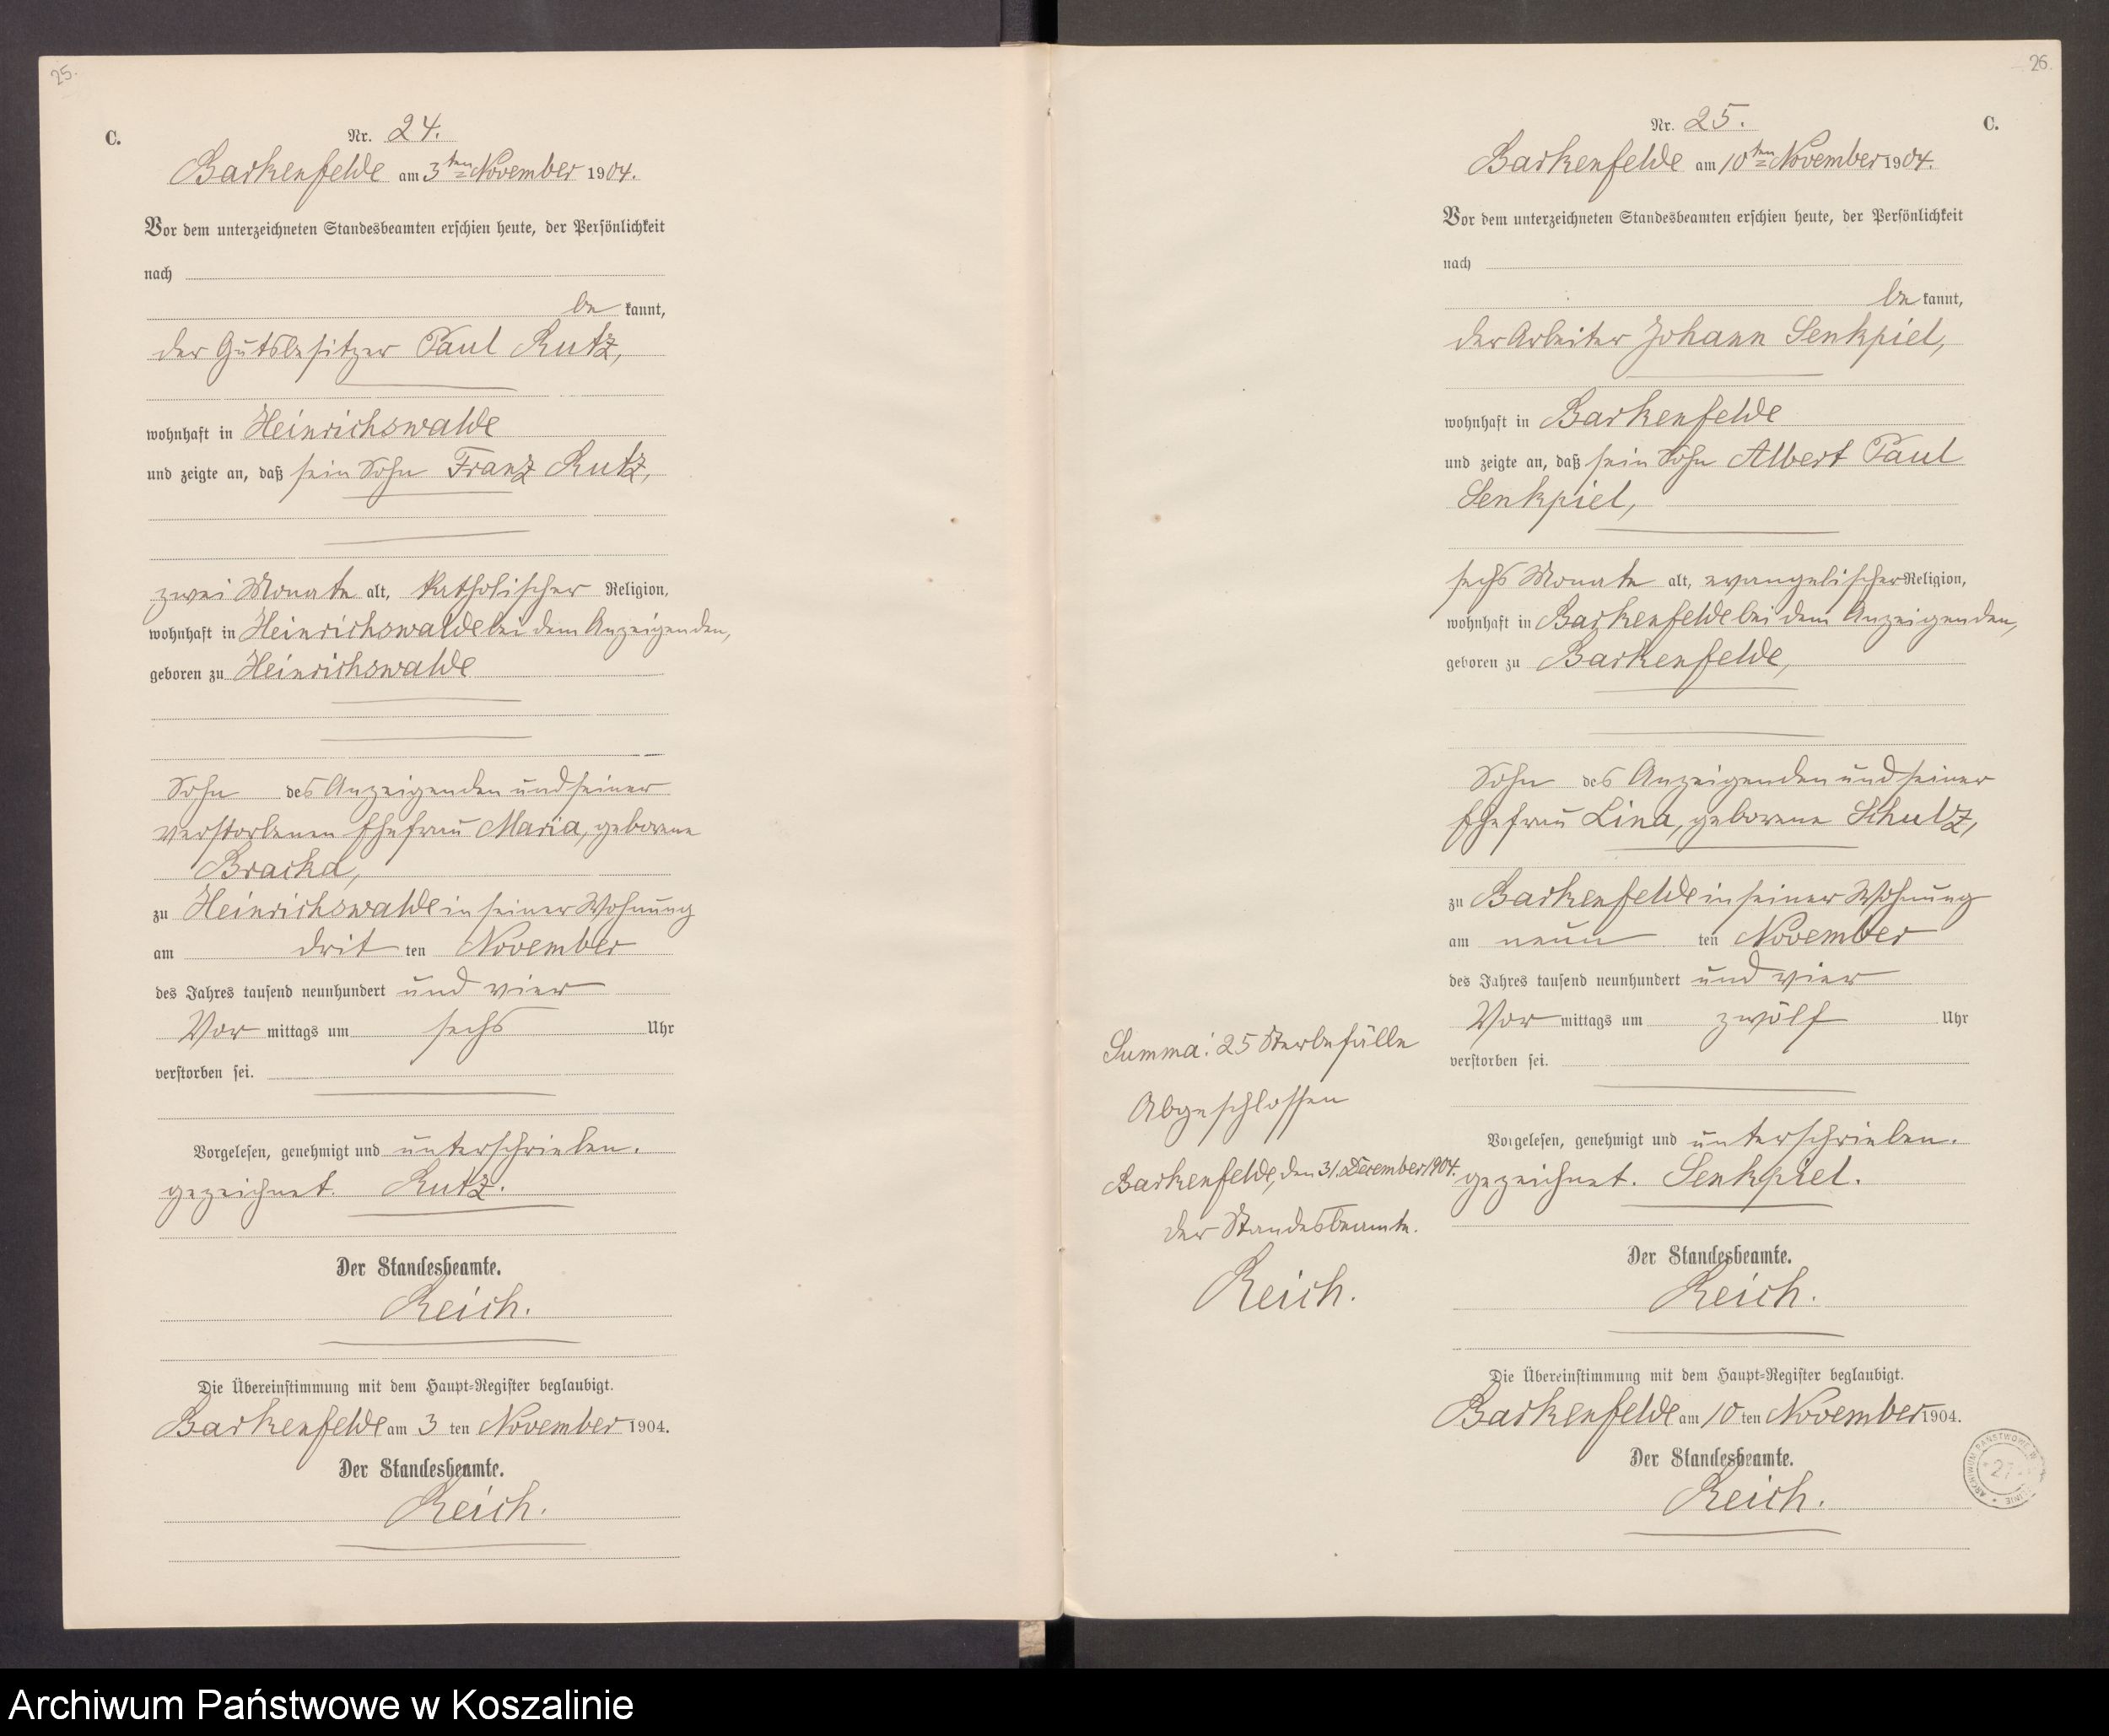 25.
C.
Nr. 24.
Barkenfelde am 3ten November 1904.
Vor dem unterzeichneten Standesbeamten erschien heute, der Persönlichkeit
nach
be kannt,
der Gutsbesitzer Paul Rutz,
wohnhaft in Heinrichswalde
und zeigte an, daß sein Sohn Franz Rutz,
zwei Monate alt, katholischer Religion,
wohnhaft in Heinrichswalde bei dem Anzeigenden,
geboren zu Heinrichswalde
Sohn des Anzeigenden und seiner
verstorbenen Ehefrau Maria, geborene
Bracka,
zu Heinrichswalde in seiner Wohnung
am drit ten November
des Jahres tausend neunhundert und vier
Vor mittags um sechs Uhr
verstorben sei.
Vorgelesen, genehmigt und unterschrieben.
gezeichnet. Rutz.
Der Standesbeamte.
Reich.
Die Übereinstimmung mit dem Haupt-Register beglaubigt.
Barkenfelde am 3 ten November 1904.
Der Standesbeamte.
Reich.
26.
C.
Nr. 25.
Barkenfelde am 10ten November 1904.
Vor dem unterzeichneten Standesbeamten erschien heute, der Persönlichkeit
nach
be kannt,
der Arbeiter Johann Senkpiel,
wohnhaft in Barkenfelde
und zeigte an, daß sein Sohn Albert Paul
Senkpiel,
sechs Monate alt, evangelischer Religion,
wohnhaft in Barkenfelde bei dem Anzeigenden,
geboren zu Barkenfelde,
Sohn des Anzeigenden und seiner
Ehefrau Lina, geborene Schulz,
zu Barkenfelde in seiner Wohnung
am neun ten November
des Jahres tausend neunhundert und vier
Vor mittags um zwölf Uhr
verstorben sei.
Vorgelesen, genehmigt und unterschrieben.
gezeichnet. Senkpiel.
Der Standesbeamte.
Reich.
Die Übereinstimmung mit dem Haupt-Register beglaubigt.
Barkenfelde am 10 ten November 1904.
Der Standesbeamte.
Reich.
Summa: 25 Sterbefälle
Abgeschlossen
Barkenfelde, den 31. Dezember 1904.
Der Standesbeamte.
Reich.
ARCHIWUM PAŃSTWOWE W
Archiwum Państwowe w Koszalinie